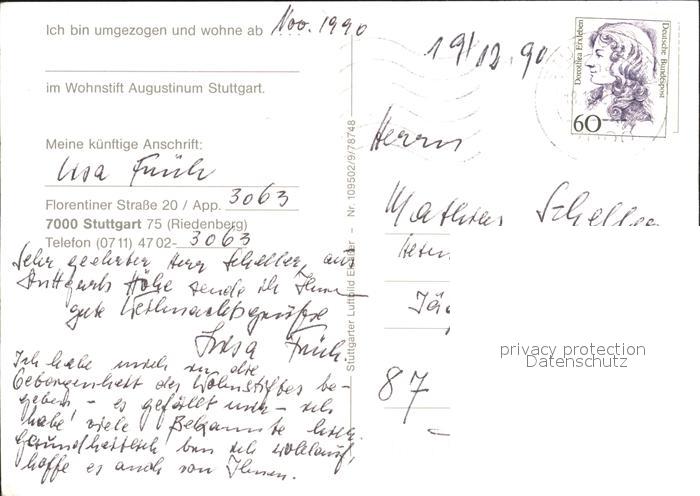 Ich bin umgezogen und wohne ab Nov. 1990
im Wohnstift Augustinum Stuttgart.
Meine künftige Anschrift:
Lisa Früh
Florentiner Straße 20 / App. 3063
7000 Stuttgart 75 (Riedenberg)
Telefon (07 11) 47 02- 3063
Sehr geehrter Herr Scheller, aus
Stuttgarts Höhe sende ich Ihnen
gute Weihnachtsgrüße
Lisa Früh
Ich habe mich in die
Geborgenheit des Wohnstiftes be-
geben - es gefällt mir - ich
habe viele Bekannte hier.
Gesundheitlich bin ich wohlauf,
hoffe es auch von Ihnen.
Stuttgarter Luftbild Elsäßer – Nr. 109502/9/78748
19/12.90
Dorothea Erxleben
Deutsche Bundespost
60
Herrn
Mathias Scheller
87
privacy protection
Datenschutz